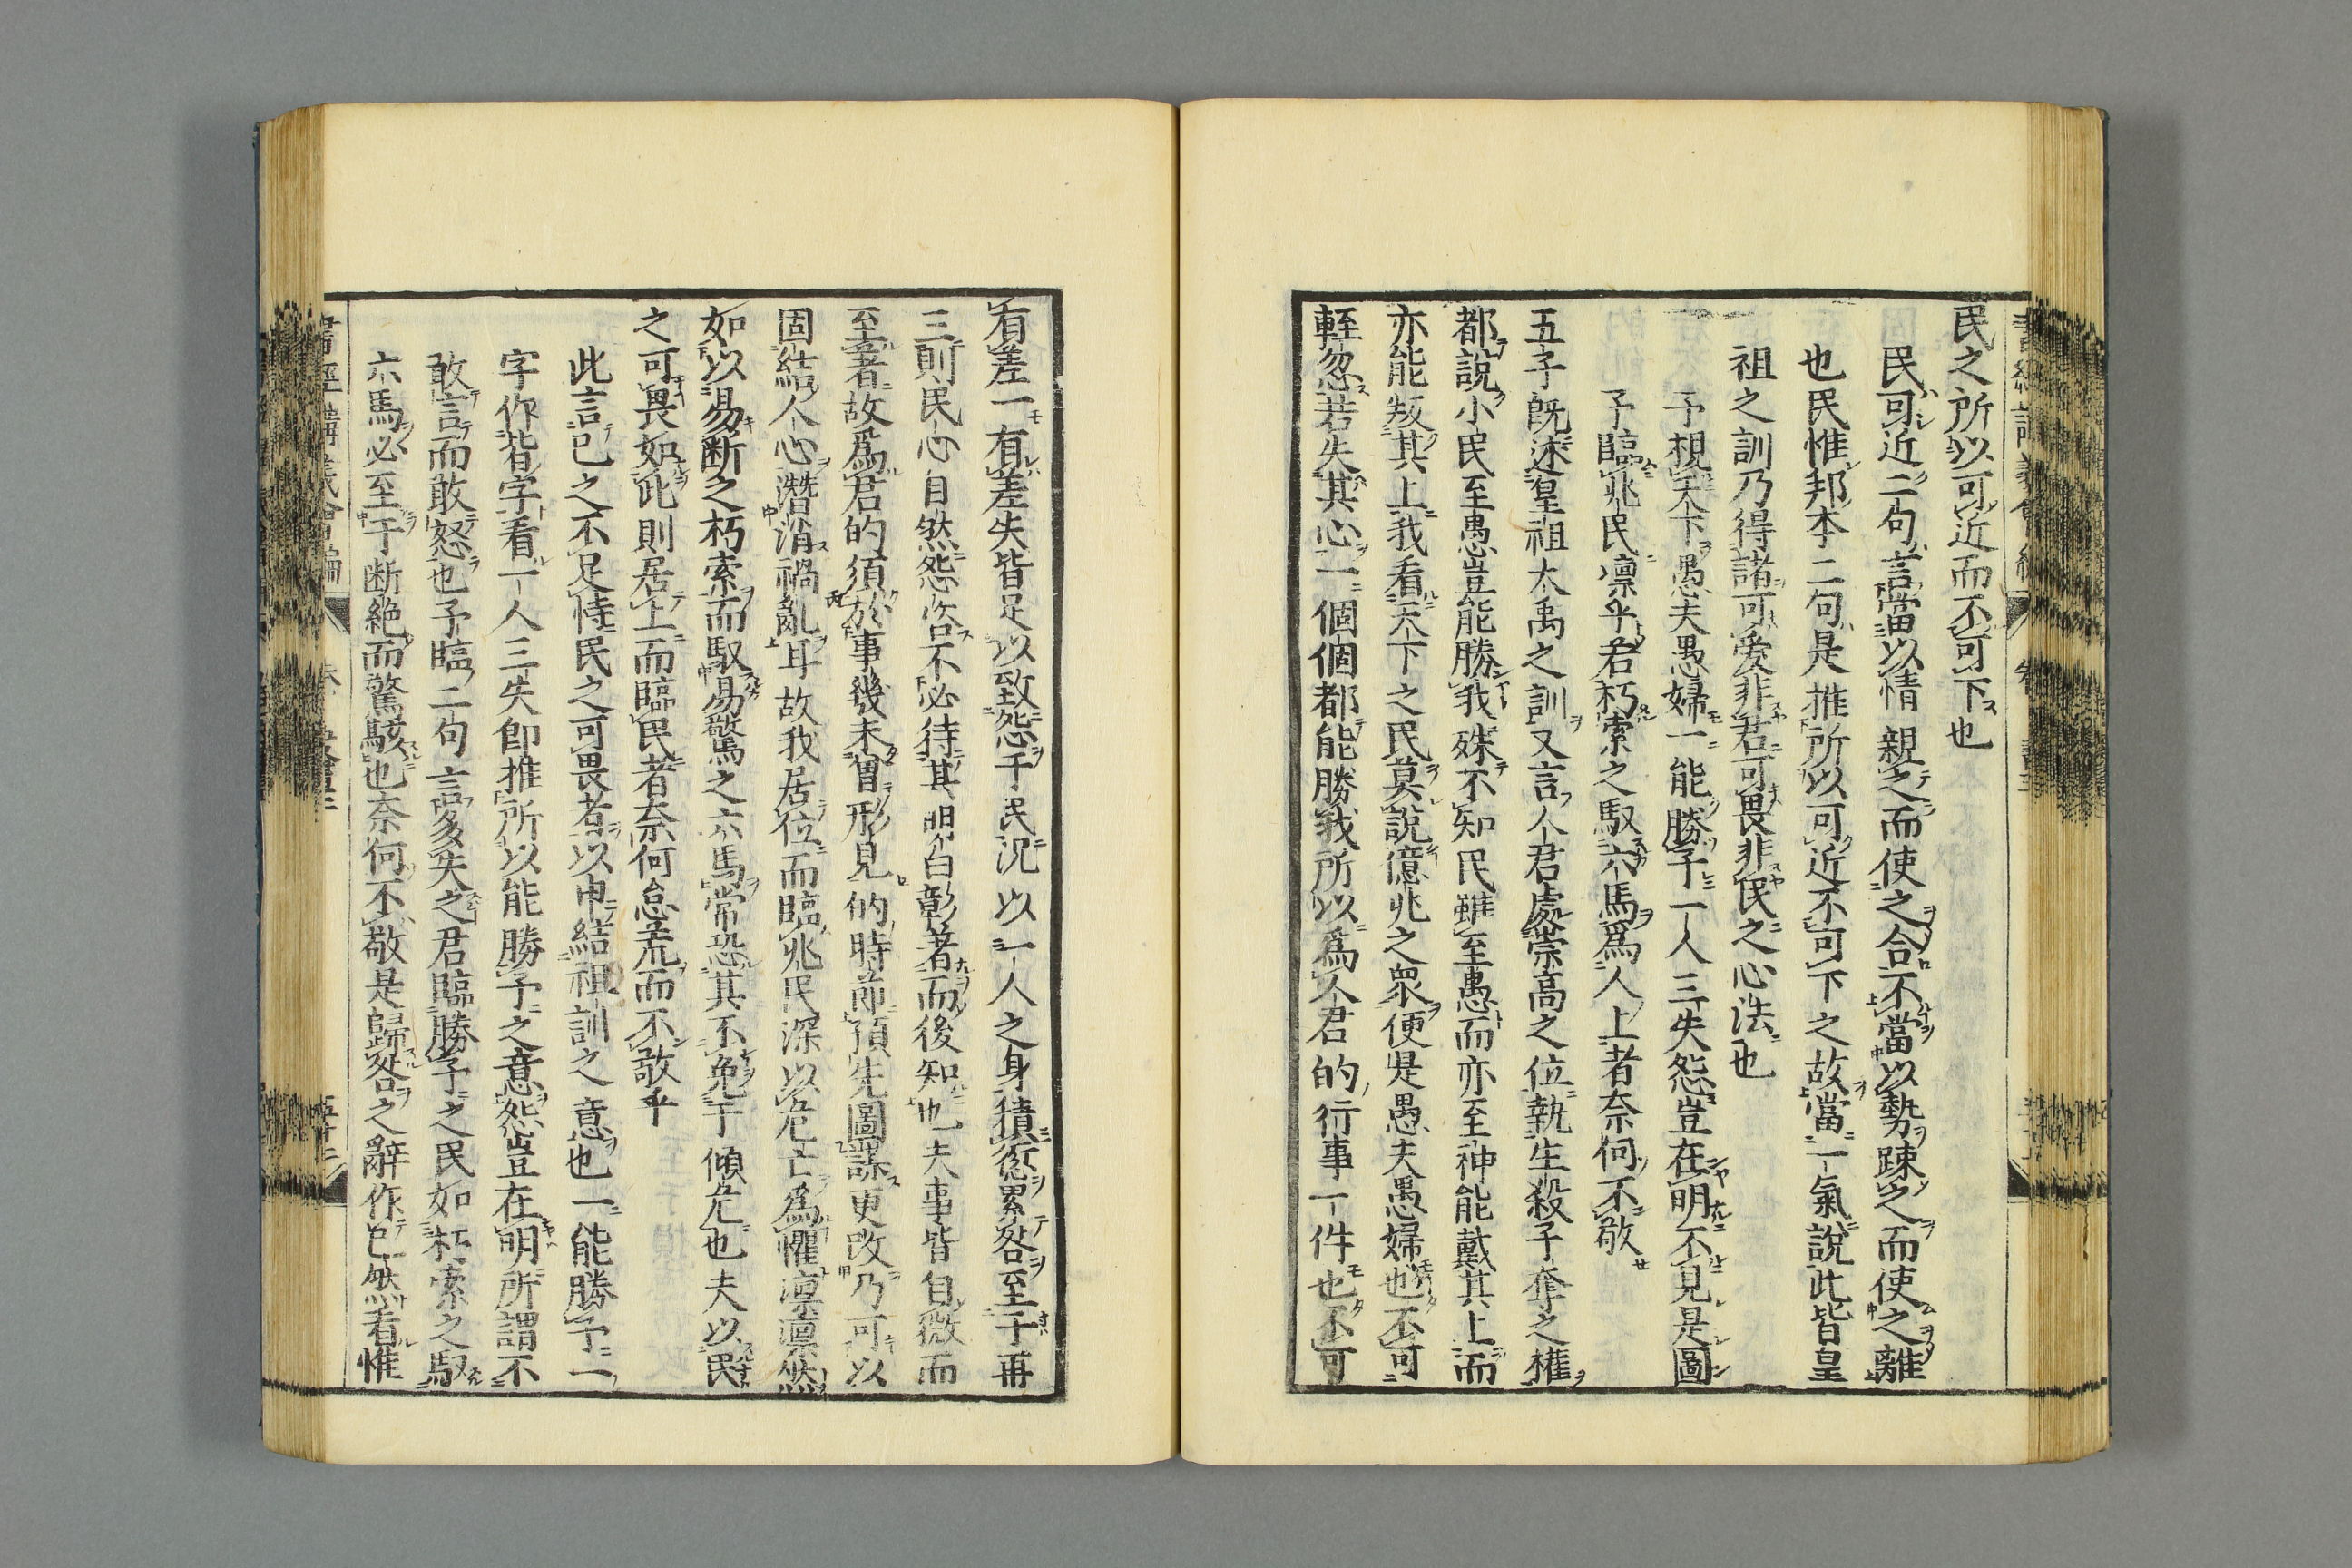 民之所以可近而不可下也
民可近二句言當以情親之而使之合不當以勢踈之而使之離
也民惟邦本二句是推所以可近不可下之故當一氣說此皆皇
祖之訓乃得諸可愛非君可畏非民之心法也
予視天下愚夫愚婦一能勝予一人三失怨豈在明不見是圖
予臨兆民凛乎若朽索之馭六馬爲人上者奈何不敬
五子既述皇祖大禹之訓又言人君處崇高之位執生殺予奪之權
都說小民至愚豈能勝我殊不知民雖至愚而亦至神能戴其上而
亦能叛其上我看天下之民莫說億兆之衆便是愚夫愚婦也不可
輕忽若失其心一個個都能勝我所以爲人君的行事一件也不可
有差一有差失皆足以致怨于民况以一人之身積愆累咎至于再
三則民心自然怨咨不必待其明白彰著而後知也夫事皆自微而
至著故爲君的須於事幾未曾形見的時節預先圖謀更改乃可以
固結人心潛消禍亂耳故我居位而臨兆民深以危亡爲懼凛凛然
如以易断之朽索而馭易驚之六馬常恐其不免于傾危也夫以民
之可畏如此則居上而臨民者奈何怠荒而不敬乎
此言已之不足恃民之可畏者以申結祖訓之意也一能勝予一
字作皆字看一人三失卽推所以能勝予之意怨豈在明所謂不
敢言而敢怒也予臨二句言多失之君臨勝予之民如朽索之馭
六馬必至于断絶而驚駭也奈何不敬是歸咎之辭作色然看惟
書經講義會編